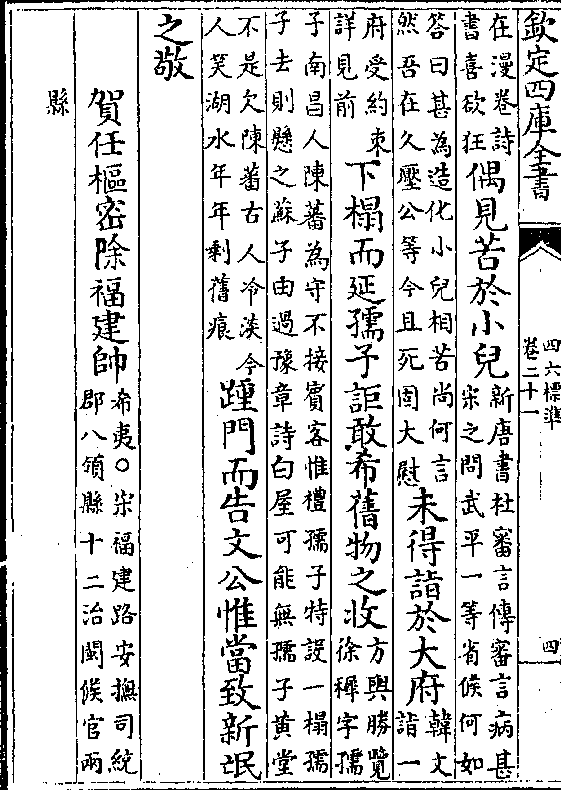 欽定四庫全書
四六標準
卷二十一
四
在漫卷詩
書喜欲狂
偶見苦於小兒
新唐書杜審言傳審言病甚
宋之問武平一等省候何如
答曰甚為造化小兒相苦尚何言
然吾在久壓公等今且死固大慰
未得詣於大府
韓文
詣一
府受約束
詳見前
下榻而延孺子詎敢希舊物之收
方輿勝覽
徐穉字孺
子南昌人陳蕃為守不接賓客惟禮孺子特設一榻孺
子去則懸之蘇子由過豫章詩白屋可能無孺子黄堂
不是欠陳蕃古人冷淡今
人笑湖水年年剩舊痕
踵門而告文公惟當致新氓
之敬
賀任樞密除福建帥
希夷○宋福建路安撫司統
郡八領縣十二治閩候官兩
縣